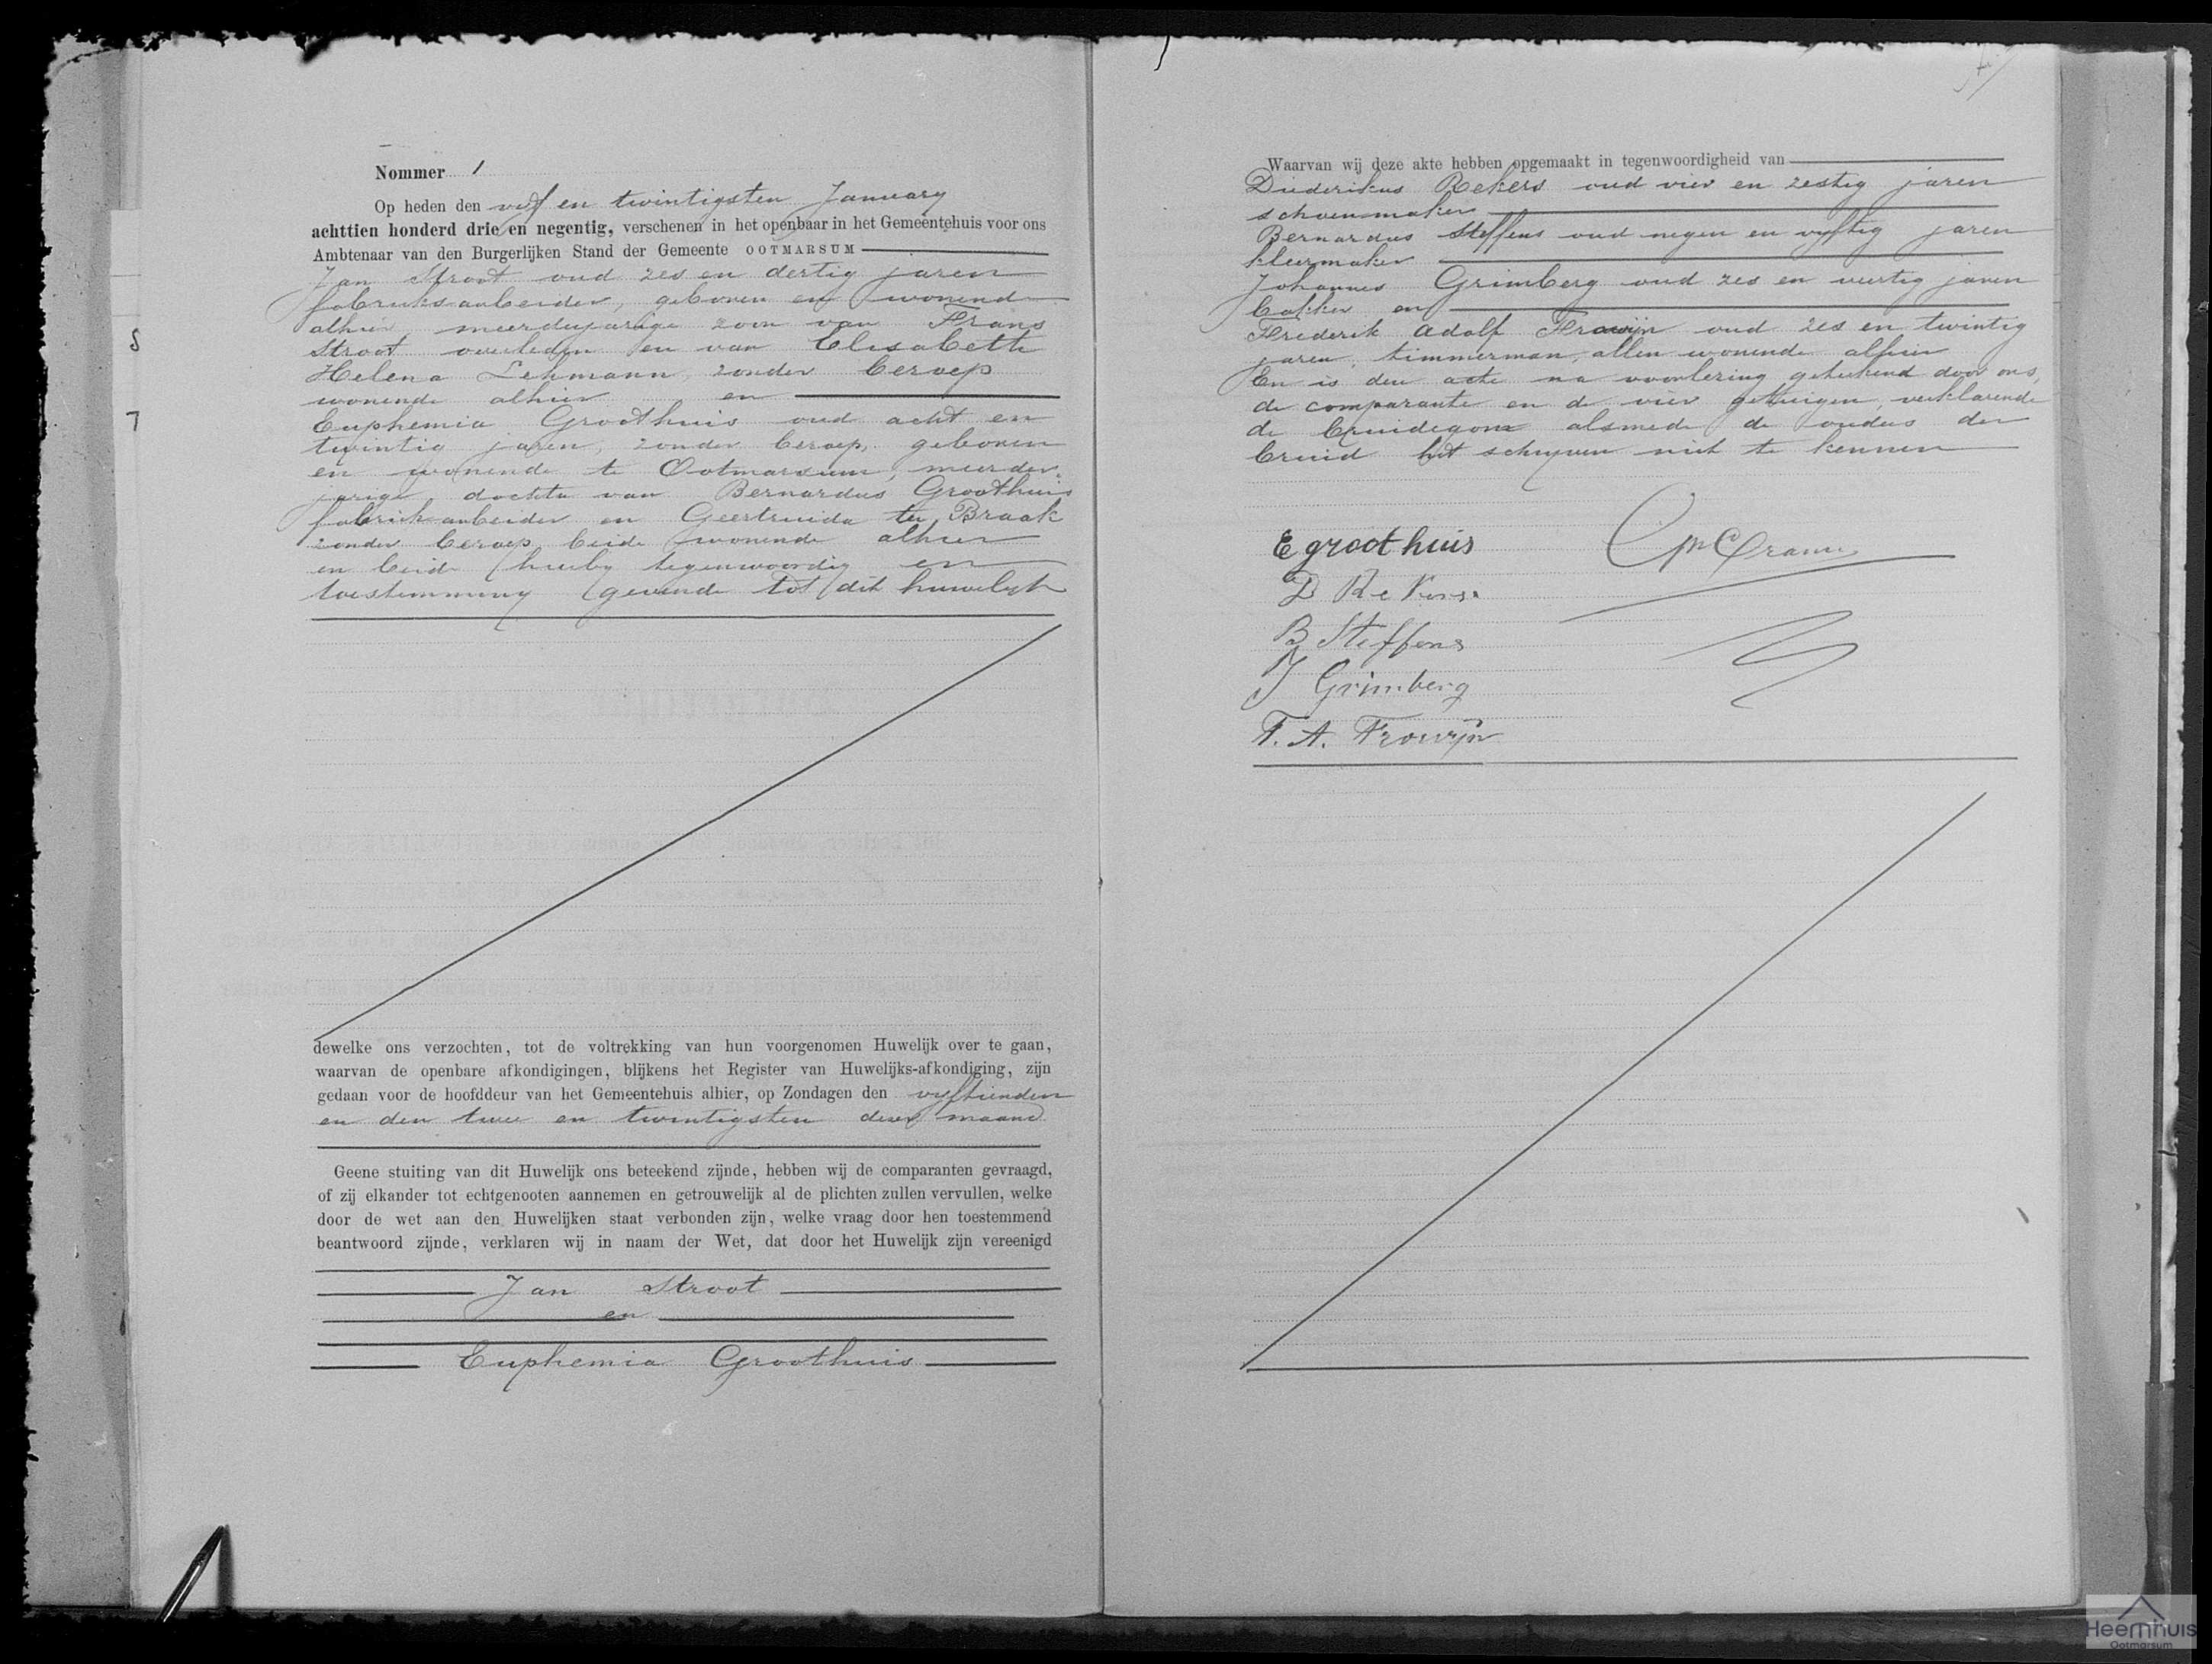 Nommer 1
Op heden den vijf en twintigsten January
achttien honderd drie en negentig, verschenen in het openbaar in het Gemeentehuis voor ons
Ambtenaar van den Burgerlijken Stand der Gemeente OOTMARSUM
Jan Stroot oud zes en dertig jaren
fabrieksarbeider, geboren en wonende
alhier meerderjarige zoon van Frans
Stroot overleden en van Elisabeth
Helena Lehmann, zonder beroep
wonende alhier en
Euphemia Groothuis oud acht en
twintig jaren, zonder beroep, geboren
en wonende te Ootmarsum, meerder
jarige dochter van Bernardus Groothuis
fabriekarbeider en Geertruida ter Braak
zonder beroep beide wonende alhier
en beide hierby tegenwoordig en
toestemming gevende tot dit huwelyk
dewelke ons verzochten, tot de voltrekking van hun voorgenomen Huwelijk over te gaan,
waarvan de openbare afkondigingen, blijkens het Register van Huwelijks-afkondiging, zijn
gedaan voor de hoofddeur van het Gemeentehuis alhier, op Zondagen den vyftienden
en den twee en twintigsten dezer maand
Geene stuiting van dit Huwelijk ons beteekend zijnde, hebben wij de comparanten gevraagd,
of zij elkander tot echtgenooten aannemen en getrouwelijk al de plichten zullen vervullen, welke
door de wet aan den Huwelijken staat verbonden zijn, welke vraag door hen toestemmend
beantwoord zijnde, verklaren wij in naam der Wet, dat door het Huwelijk zijn vereenigd
Jan Stroot
en
Euphemia Groothuis
Waarvan wij deze akte hebben opgemaakt in tegenwoordigheid van
Diederikus Rekers oud vier en zestig jaren
schoenmaker
Bernardus Steffens oud negen en vyftig jaren
kleermaker
Johannes Grimberg oud zes en veertig jaren
bakker en
Frederik Adolf Frowijn oud zes en twintig
jaren, timmerman, allen wonende alhier
En is deze acte na voorlezing geteekend door ons,
de comparante en de vier getuigen, verklarende
de bruidegom alsmede de ouders der
bruid het schryven niet te kennen
E groothuis
D Rekers
B Steffens
J Grimberg
F. A. Frowijn
S
7
Heemhuis
Ootmarsum